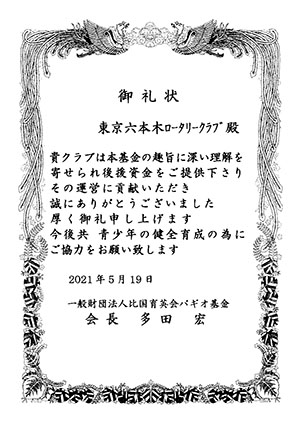 御礼状
東京六本木ロータリークラブ殿
貴クラブは本基金の趣旨に深い理解を
寄せられ後後資金をご提供下さり
その運営に貢献いただき
誠にありがとうございました
厚く御礼申し上げます
今後共 青少年の健全育成の為に
ご協力をお願い致します
2021年5月19日
一般財団法人比国育英会バギオ基金
会長 多田 宏